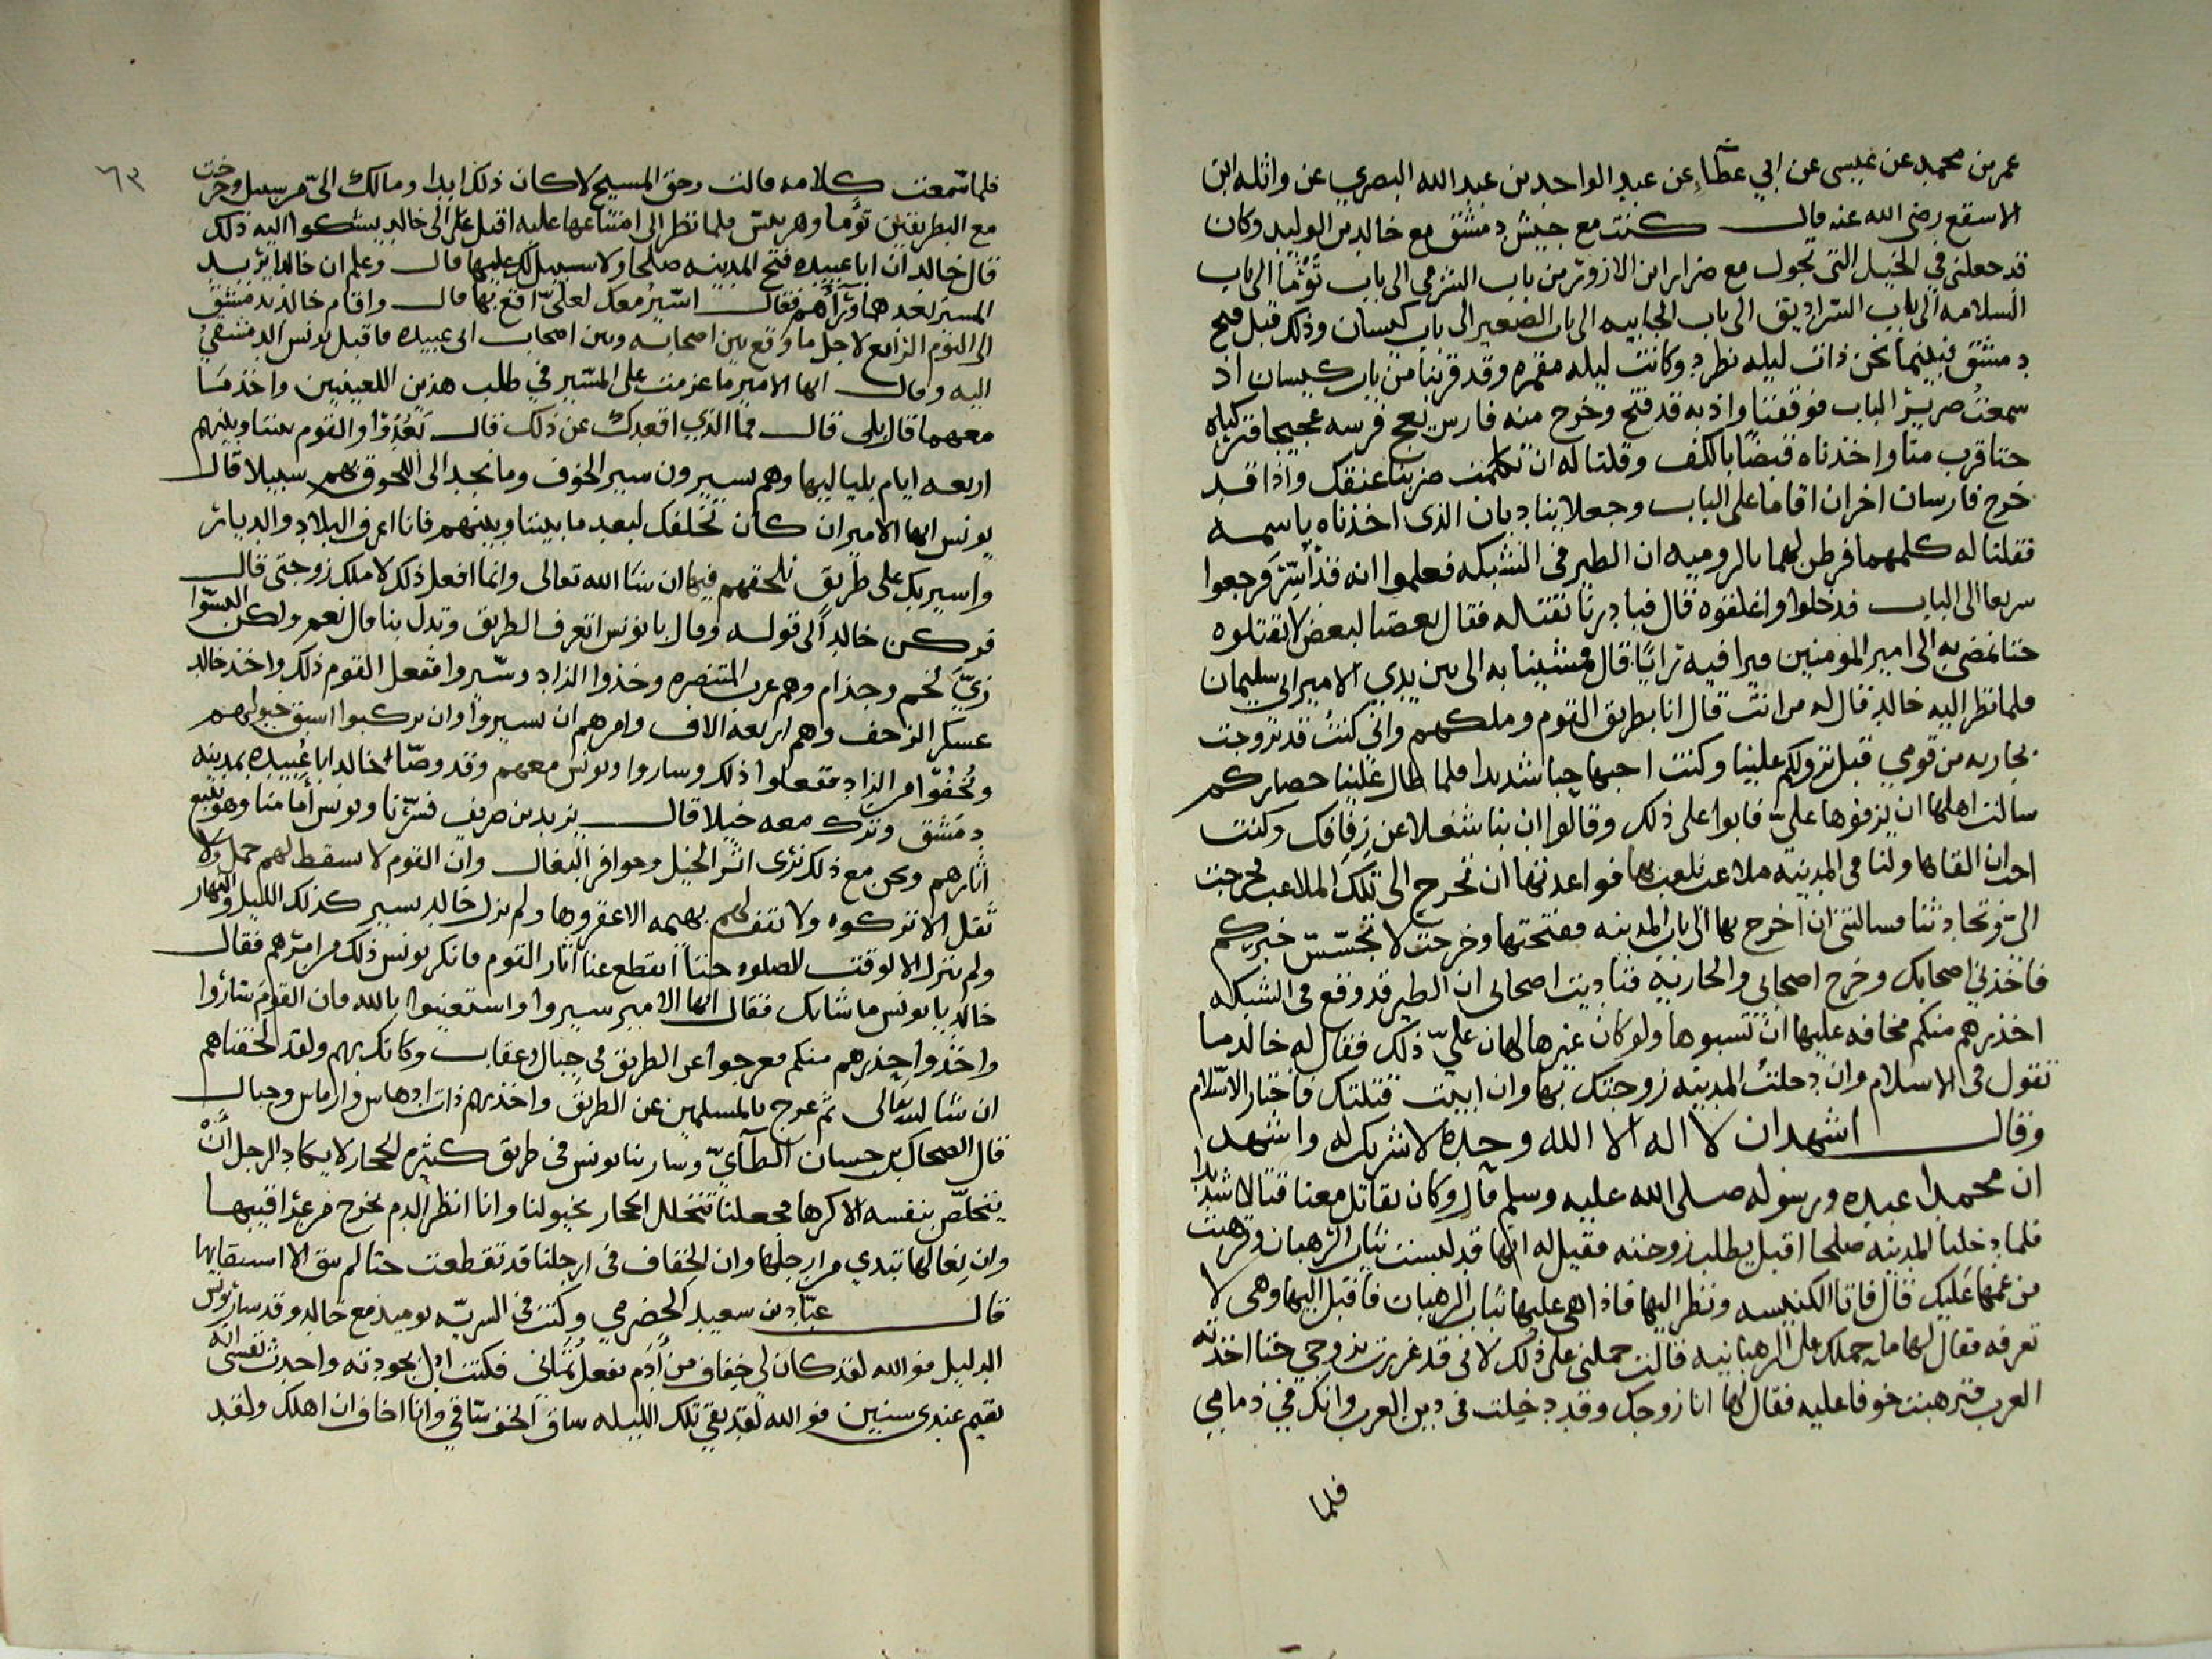 عمر بن محمد عن عيسى عن ابي عطاء عن عبد الواحد بن عبد الله البصري عن واثله ابن
الاسقع رضى الله عنه قال كنت مع جيش دمشق مع خالد بن الوليد وكان
قد جعلنى في الخيل التى تجول مع ضرار ابن الازور من باب الشرقى الى باب توما الى باب
السلامه الى باب الفراديق الى باب الجابيه الى باب الصغير الى باب كيسان وذلك قبل فتح
دمشق فبينما نحن ذات ليله نطرد وكانت ليله مقمره وقد قربنا من باب كيسان اذ
سمعنا صرير الباب فوقفنا واذ به قد فتح وخرج منه فارس فرسه فتركناه
حتا قرب منا واخذناه قبضا بالكف وقلنا له ان تكلمت ضربنا عنقك واذا قد
خرج فارسان اخران اقاما على الباب وجعلا يناديان الذى اخذناه باسمه
فقلنا له كلمهما فرطن لهما بالروميه ان الطير في الشبكه فعلموا انه قد أسر فرجعوا
سريعا الى الباب فدخلوا واغلقوه قال فبادرنا نقتله فقال بعضنا لبعض لا تقتلوه
حتا نمضى به الى امير المؤمنين فيرا فيه رايا قال فمشينا به الى بين يدي الامير ابى سليمان
فلما نظر اليه خالد قال له من انت قال انا بطريق القوم وملكهم وانى كنت قد تزوجت
بجاريه من قومي قبل نزولكم علينا وكنت احبها حبا شديدا فلما طال علينا حصاركم
سالت اهلها ان يزفوها علي فابوا على ذلك وقالوا ان بنا شغلا عن زفافك وكنت
احب ان القاها ولنا فى المدينه ملاعب نلعب بها فواعدتها ان تخرج الى تلك الملاعب فخرجت
الي وتحادثنا فسالتنى ان اخرج بها الى باب المدينه ففتحتها وخرجت لاتجسس خبركم
فاخذني اصحابك وخرج اصحابي والجاريه فناديت اصحابى ان الطير قد وقع في الشبكه
احذرهم منكم مخافه عليها ان تسبوها ولو كان غيرها لهان علي ذلك فقال له خالد ما
تقول فى الاسلام وان دخلت المدينه زوجتك بها وان ابيت قتلتك فاختار الاسلام
وقال اشهد ان لا اله الا الله وحده لا شريك له واشهد
ان محمدا عبده ورسوله صلى الله عليه وسلم قال وكان يقاتل معنا قتالا شديدا
فلما دخلنا المدينه صلحا اقبل يطلب زوجته فقيل له انها قد لبست ثياب الرهبان وترهبت
من غمها عليك قال فاتا الكنيسه ونظر اليها فاذا هى عليها ثياب الرهبان فاقبل اليها وهى لا
تعرفه فقال لها ما حملك على الرهبانيه فقالت حملنى على ذلك لانى قد غررت بزوجي حتا اخذته
العرب فترهبت خوفا عليه فقال لها انا زوجك وقد دخلت فى دين العرب وانك في ذمامي
فلما
٦٣
فلما سمعت كلامه قالت وحق المسيح لا كان ذلك ابدا ومالك الي من سبيل وخرجت
مع البطريقين توما وهربيس فلما نظر الى امتناعها عليه اقبل على الى خالد يشكوا اليه ذلك
قال خالد ان ابا عبيده فتح المدينه صلحا ولا سبيل لك عليها قال وعلم ان خالدا يريد
المسير بعدهما ورآهم فقال اسير معك لعلي اقع بها قال واقام خالد بدمشق
الى اليوم الرابع لاجل ما وقع بين اصحابه وبين اصحاب ابى عبيده فاقبل يونس الدمشقي
اليه وقال ايها الامير ما عزمت على المسير في طلب هذين اللعينين واخذ ما
معهما قال بلى قال فما الذي اقعدك عن ذلك قال بعدوا والقوم بيننا وبينهم
اربعه ايام بلياليها وهم يسيرون سير الخوف وما نجد الى اللحوق بهم سبيلا قال
يونس ايها الامير ان كان تخلفك لبعد ما بيننا وبينهم فانا اعرف البلاد والديار
واسير بك على طريق نلحقهم فيها ان شا الله تعالى وانما افعل ذلك لاملك زوجتى قال
فركن خالد الى قوله وقال يا يونس اتعرف الطريق وتدل بنا قال نعم ولكن البسوا
زي لخم وجذام وهم عرب المتنصره وخذوا الزاد وسيروا ففعل القوم ذلك واخذ خالد
عسكر الزحف وهم اربعه الاف وامرهم ان يسيروا وان يركبوا اسبق خيولهم
ويخفوا من الزاد ففعلوا ذلك وساروا ويونس معهم وقد وصا خالد ابا عبيده بمدينه
دمشق وترك معه خيلا قال يزيد بن ضريف فسرنا ويونس امامنا وهو يتبع
اثارهم ونحن مع ذلك نرى اثر الخيل وحوافر البغال وان القوم لا يسقط لهم حمل ولا
ثقل الا تركوه ولا تقف لهم بهيمه الا عقروها ولم يزل خالد يسير كذلك الليل والنهار
ولم ينزل الا لوقت الصلوه حتا انقطع عنا اثار القوم فانكر يونس ذلك من امرهم فقال
خالد يا يونس ما شانك فقال ايها الامير سيروا واستعينوا بالله فان القوم ساروا
واخذوا حذرهم منكم فعرجوا عن الطريق في جبال وعقاب وكانك بهم ولقد لحقناهم
ان شا الله تعالى ثم عرج بالمسلمين عن الطريق واخذ بهم ذات ادهاس وارماس وجبال
قال الضحاك بن حسان الطآي وسار بنا يونس فى طريق كثيره الحجار لا يكاد الرجل ان
يتخلص بنفسه الا كرها فجعلنا نتخلل الحجار بخيولنا وانا انظر الدم يخرج من عراقيبها
وان نعالها تبدي من ارجلها وان الخفاف فى ارجلنا قد تقطعت حتا لم يبق الا اسيقانها
قال عباد بن سعيد الحضرمي وكنت فى السريه يوميذ مع خالد وقد سار يونس
الدليل فو الله لقد كان لي خفاف من ادم بنعل يمانى فكنت ادل بجودته واحدث نفسى انه
يقيم عندى سنين فو الله لقد بقي تلك الليله ساق الخف فى ساقي وانا اخاف ان اهلك ولقد